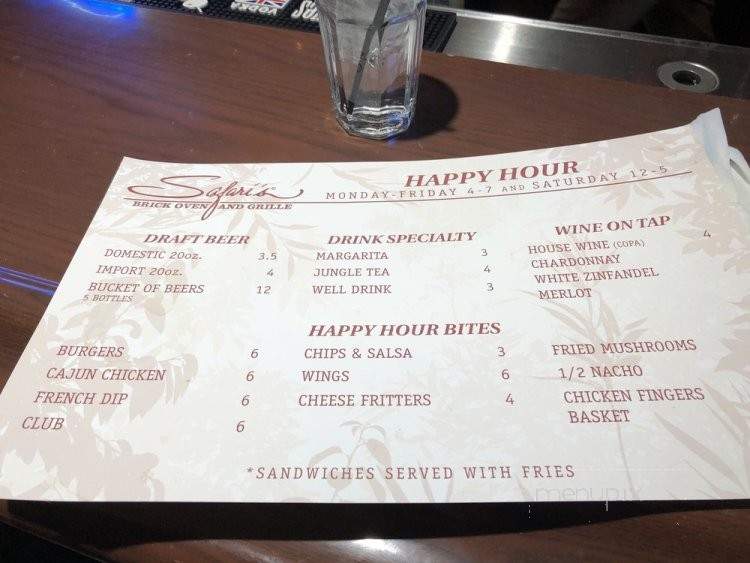 Safari's
BRICK OVEN AND GRILLE
HAPPY HOUR
MONDAY-FRIDAY 4-7 AND SATURDAY 12-5
DRAFT BEER
DOMESTIC 20oz. 3.5
IMPORT 20oz. 4
BUCKET OF BEERS 12
5 BOTTLES
DRINK SPECIALTY
MARGARITA 3
JUNGLE TEA 4
WELL DRINK 3
WINE ON TAP
HOUSE WINE (COPA) 4
CHARDONNAY
WHITE ZINFANDEL
MERLOT
HAPPY HOUR BITES
BURGERS 6
CAJUN CHICKEN 6
FRENCH DIP 6
CLUB 6
CHIPS & SALSA 3
WINGS 6
CHEESE FRITTERS 4
FRIED MUSHROOMS
1/2 NACHO
CHICKEN FINGERS
BASKET
*SANDWICHES SERVED WITH FRIES